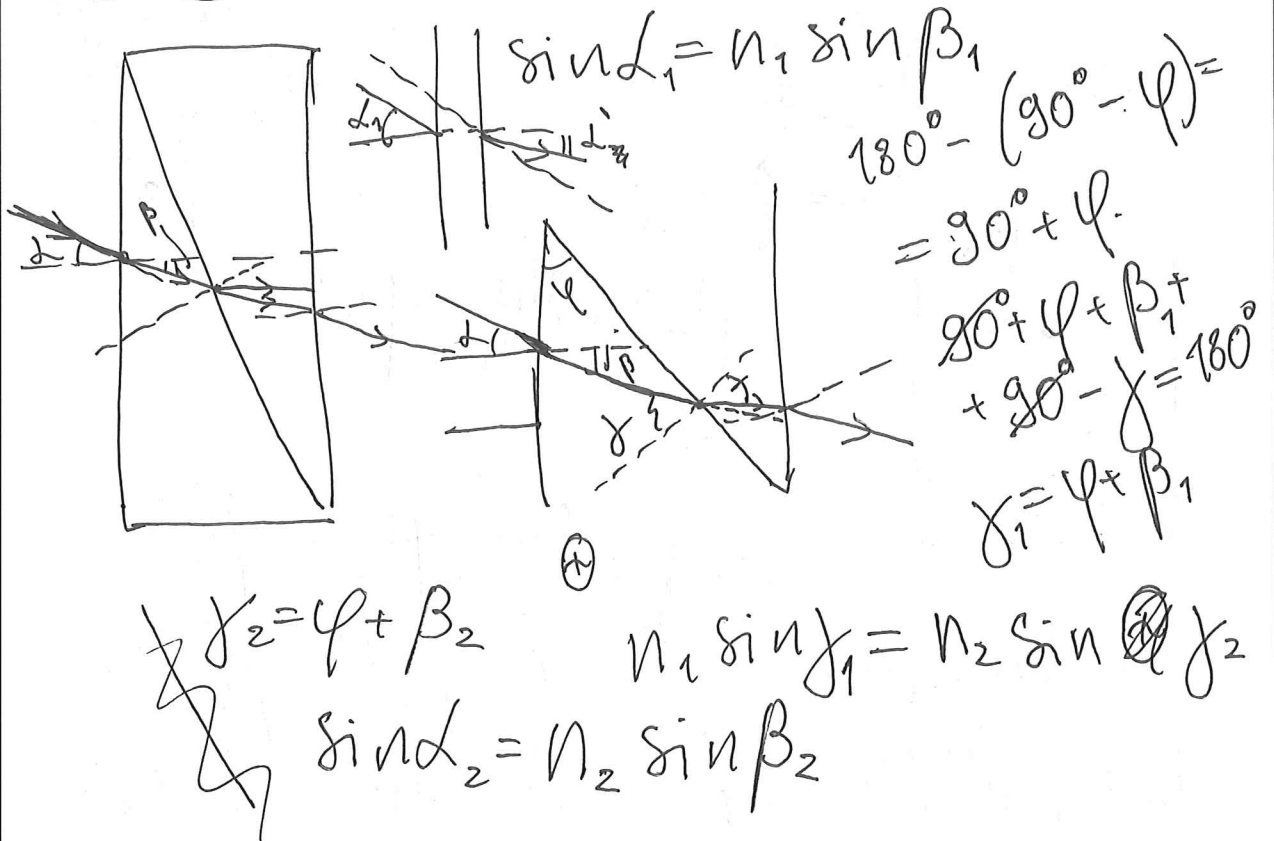 sin α₁ = n₁ sin β₁
180° - (90° - φ) =
= 90° + φ.
90° + φ + β₁ +
+ 90° - γ = 180°
γ₁ = φ + β₁
α₁
α
β
φ
α
β
γ
γ₂ = φ + β₂
n₁ sin γ₁ = n₂ sin γ₂
sin α₂ = n₂ sin β₂